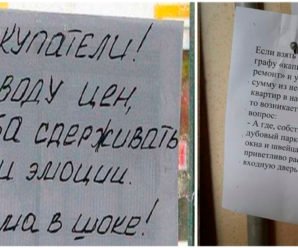 КУПАТЕЛИ!
ВОДУ ЦЕН,
БА СДЕРЖИВАТЬ
И ЭМОЦИИ.
МА В ШОКЕ!
Если взять
графу «капи
ремонт» и у
сумму из не
квартир в на
то возникает
вопрос:
- А где, собст
дубовый парк
окна и швейца
приветливо ра
входную дверь